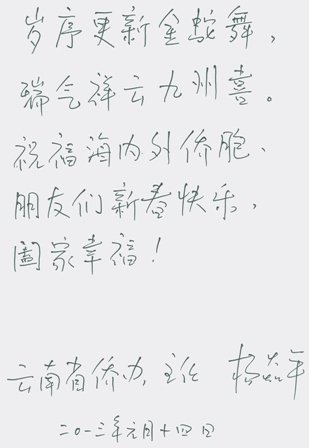 岁序更新金蛇舞，
瑞气祥云九州喜。
祝福海内外侨胞、
朋友们新春快乐，
阖家幸福！
云南省侨办，主任 杨
二〇一三年元月十四日